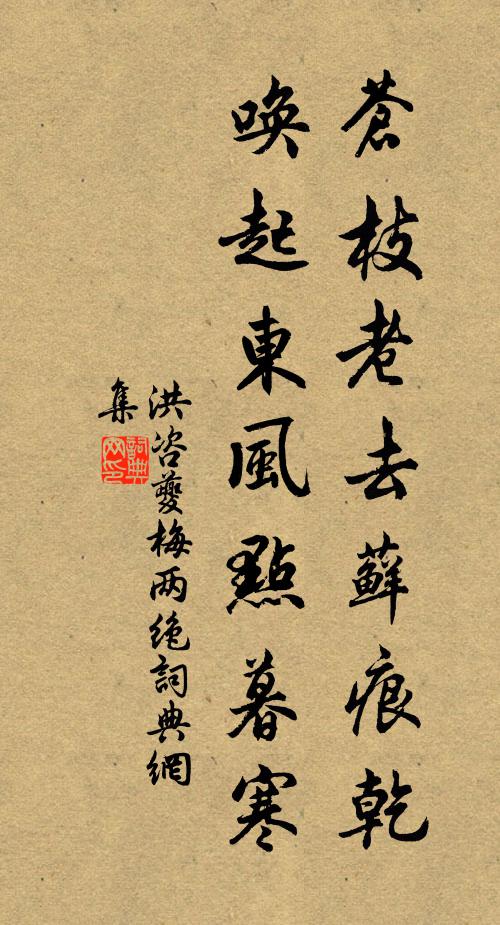 蒼枝老去蘚痕乾
喚起東風點暮寒
洪咨夔梅两绝詞典網
集
詞典网印